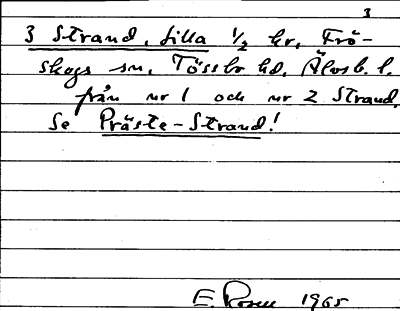 3
3 Strand, Lilla 1/2 hr, Frö-
skogs sn, Tössbo hd, Älvsb. l.
från nr 1 och nr 2 Strand.
Se Präste-Strand!
E. Rosell 1965